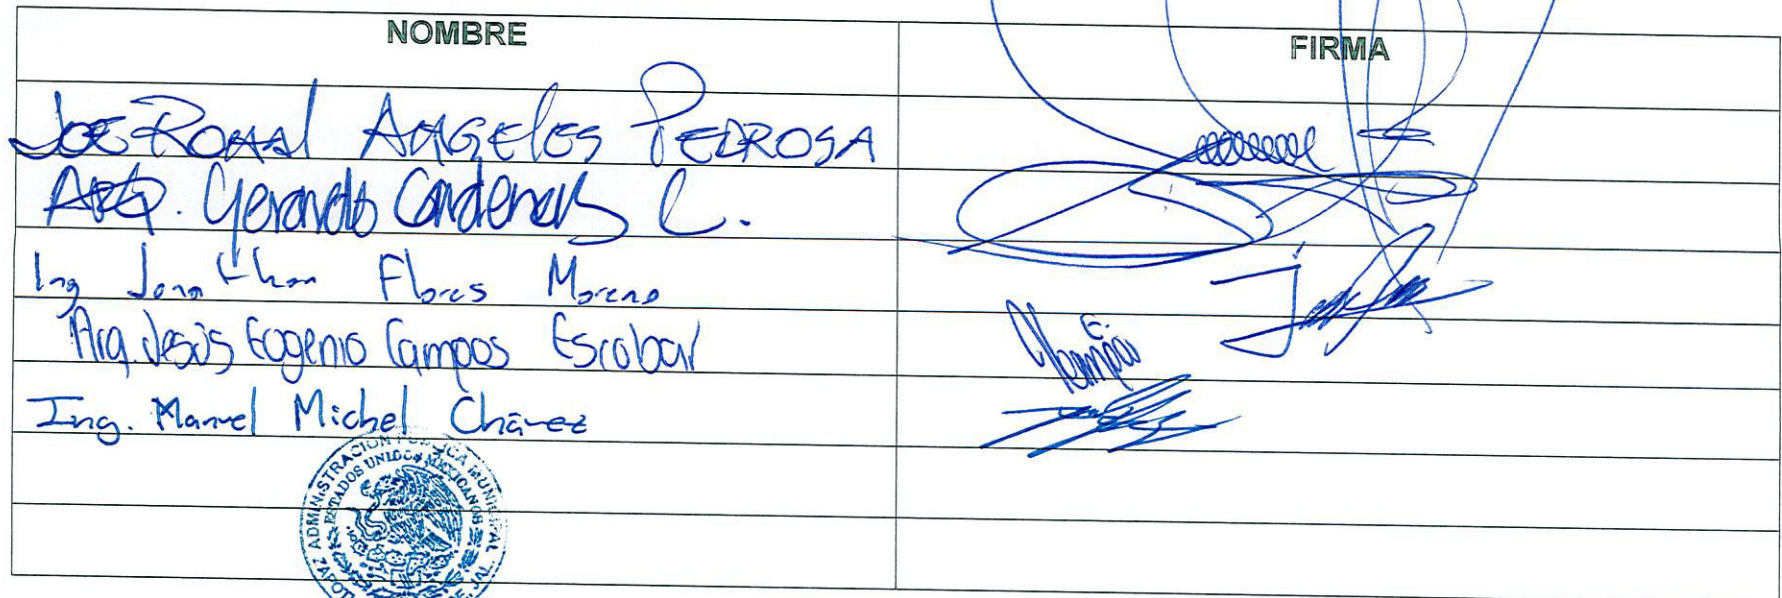 NOMBRE FIRMA
JOE ROMAL ANGELES PEDROSA
ARQ. Gerardo Cardenas C.
Ing Jonathan Flores Moreno
Arq. Jesús Eogenio Campos Escobar
Ing. Manuel Michel Chávez
ADMINISTRACION PUBLICA MUNICIPAL
ESTADOS UNIDOS MEXICANOS